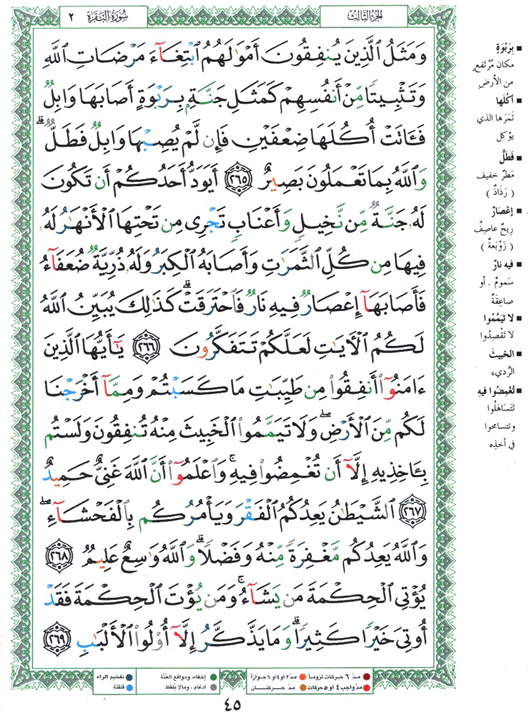 الجزء الثالث
سورة البقرة ٢
وَمَثَلُ الَّذِينَ يُنفِقُونَ أَمْوَالَهُمُ ابْتِغَاءَ مَرْضَاتِ اللَّهِ
وَتَثْبِيتًا مِّنْ أَنفُسِهِمْ كَمَثَلِ جَنَّةٍ بِرَبْوَةٍ أَصَابَهَا وَابِلٌ
فَـَٔاتَتْ أُكُلَهَا ضِعْفَيْنِ فَإِن لَّمْ يُصِبْهَا وَابِلٌ فَطَلٌّ ۗ
وَاللَّهُ بِمَا تَعْمَلُونَ بَصِيرٌ ﴿٢٦٥﴾ أَيَوَدُّ أَحَدُكُمْ أَن تَكُونَ
لَهُ جَنَّةٌ مِّن نَّخِيلٍ وَأَعْنَابٍ تَجْرِي مِن تَحْتِهَا الْأَنْهَارُ لَهُ
فِيهَا مِن كُلِّ الثَّمَرَاتِ وَأَصَابَهُ الْكِبَرُ وَلَهُ ذُرِّيَّةٌ ضُعَفَاءُ
فَأَصَابَهَا إِعْصَارٌ فِيهِ نَارٌ فَاحْتَرَقَتْ ۗ كَذَٰلِكَ يُبَيِّنُ اللَّهُ
لَكُمُ الْآيَاتِ لَعَلَّكُمْ تَتَفَكَّرُونَ ﴿٢٦٦﴾ يَا أَيُّهَا الَّذِينَ
ءَامَنُوا أَنفِقُوا مِن طَيِّبَاتِ مَا كَسَبْتُمْ وَمِمَّا أَخْرَجْنَا
لَكُم مِّنَ الْأَرْضِ ۖ وَلَا تَيَمَّمُوا الْخَبِيثَ مِنْهُ تُنفِقُونَ وَلَسْتُم
بِـَٔاخِذِيهِ إِلَّا أَن تُغْمِضُوا فِيهِ ۚ وَاعْلَمُوا أَنَّ اللَّهَ غَنِيٌّ حَمِيدٌ
﴿٢٦٧﴾ الشَّيْطَانُ يَعِدُكُمُ الْفَقْرَ وَيَأْمُرُكُم بِالْفَحْشَاءِ ۖ
وَاللَّهُ يَعِدُكُم مَّغْفِرَةً مِّنْهُ وَفَضْلًا ۗ وَاللَّهُ وَاسِعٌ عَلِيمٌ ﴿٢٦٨﴾
يُؤْتِي الْحِكْمَةَ مَن يَشَاءُ ۚ وَمَن يُؤْتَ الْحِكْمَةَ فَقَدْ
أُوتِيَ خَيْرًا كَثِيرًا ۗ وَمَا يَذَّكَّرُ إِلَّا أُولُو الْأَلْبَابِ ﴿٢٦٩﴾
■ بِرَبْوَةٍ
مكان مُرْتفِعٍ
من الأرض
■ أُكُلَها
ثَمَرَها الذي
يؤكل
■ فَطَلٌّ
مَطَرٌ خفيف
( رَذَاذٌ )
■ إعْصَارٌ
رِيحٌ عاصِفٌ
( زَوْبَعَةٌ )
■ فيه نارٌ
سَمومٌ . أو
صاعِقةٌ
■ لا تَيَمَّمُوا
لا تَقْصِدُوا
■ الخبيثَ
الرَّديء
■ تُغْمِضُوا فيهِ
تَتَسَاهَلُوا
وتتسامحوا
في أخذِه
مدّ ٦ حركات لزوماً
مدّ ٢ أو ٤ أو ٦ جوازاً
إخفاء، ومواقع الغنّة
تفخيم الراء
مدّ واجب ٤ أو ٥ حركات
مدّ حركتان
ادغام، ومالا يلفظ
قلقلة
٤٥